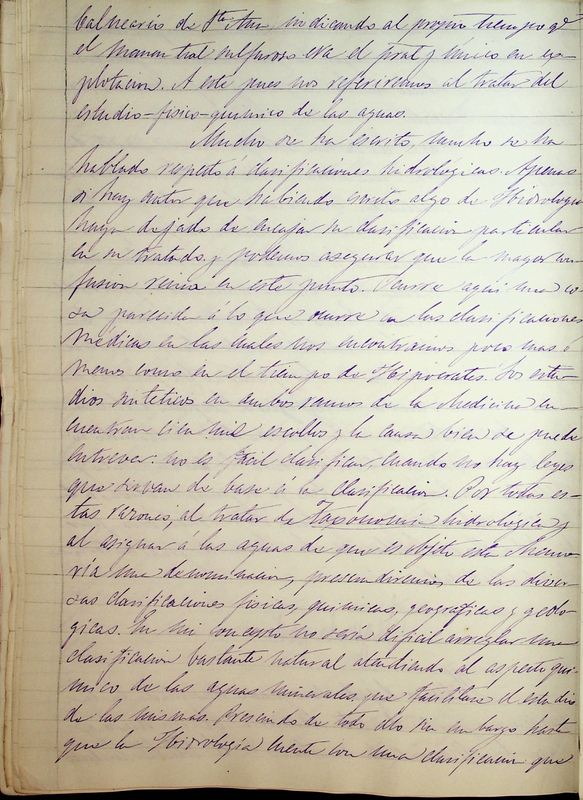 balneario de Sta Ana, indicando al propio tiempo q̃
el manantial sulfuroso era el pral y único en ex-
plotacion. A este pues nos referiremos al tratar del
estudio-fisico-quimico de las aguas.
Mucho se ha escrito, mucho se ha
hablado respecto á clasificaciones hidrológicas. Apenas
si hay autor que habiendo escrito algo de Hidrologia
haya dejado de encajar su clasificacion particular
en su tratado, y podemos asegurar que la mayor con-
fusion reina en este punto. Ocurre aqui una co-
sa parecida á lo que ocurre en las clasificaciones
médicas en las cuales nos encontramos poco mas ó
menos como en el tiempo de Hipócrates. Los estu-
dios sintéticos en ambos ramos de la Medicina en-
cuentran cien mil escollos y la causa bien se puede
entrever: no es fácil clasificar, cuando no hay leyes
que sirvan de base á la clasificacion. Por todas es-
tas razones, al tratar de Taxonomia hidrológica y
al asignar á las aguas de que es objeto esta Memo-
ria una denominacion, prescindiremos de las diver-
sas clasificaciones fisicas, quimicas, geográficas y geoló-
gicas. En mi concepto no seria dificil arreglar una
clasificacion bastante natural atendiendo al aspecto quí-
mico de las aguas minerales, que facilitase el estudio
de las mismas. Prescindo de todo ello sin embargo hasta
que la Hidrología cuente con una clasificacion que